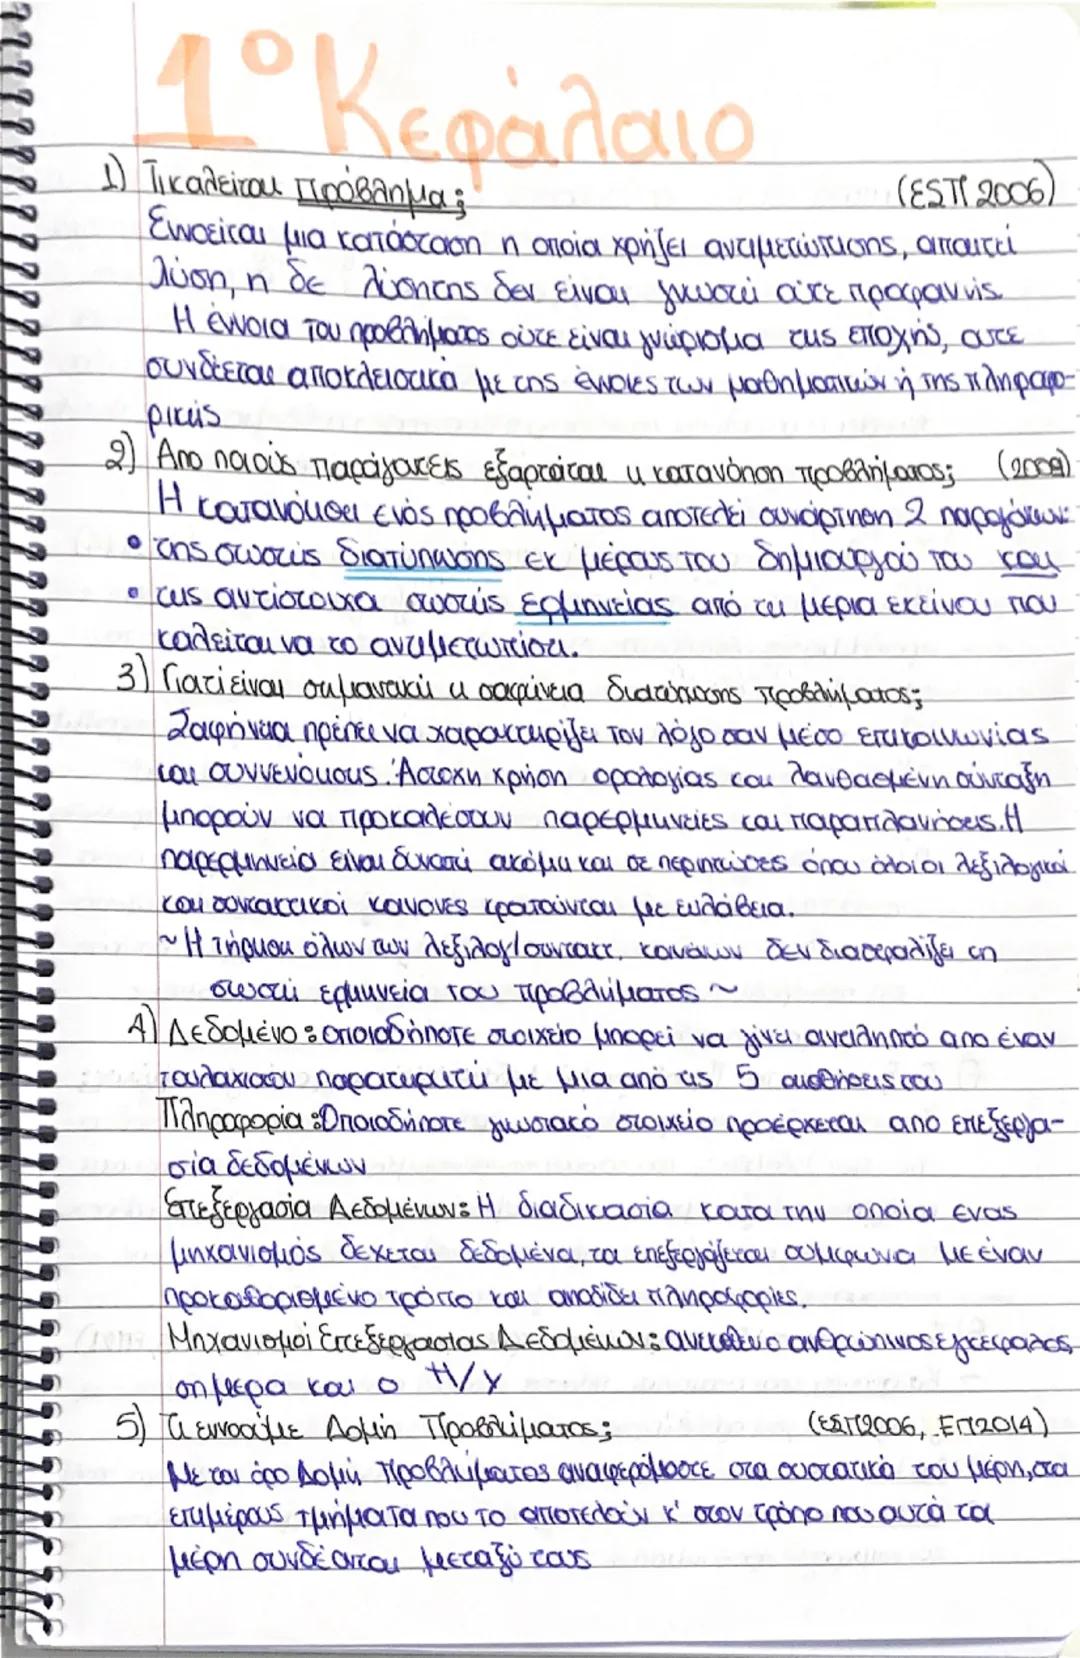 1ο Κεφάλαιο
1) Τι καλείται Πρόβλημα; (ΕΣΠ 2006)
Εννοείται μια κατάσταση η οποία χρήζει αντιμετώπισης, απαιτεί
λύση, η δε λύση της δεν είναι γνωστή ούτε προφανής
Η έννοια του προβλήματος ούτε είναι γνώρισμα της εποχής, ουτε
συνδέεται αποκλειστικά με της έννοιες των μαθηματικών ή της πληροφο-
ρικής
2) Απο ποιούς παράγοντες εξαρτάται η κατανόηση προβλήματος; (2009)
Η κατανόηση ενός προβλήματος αποτελεί συνάρτηση 2 παραγόντων:
• της σωστής διατύπωσης εκ μέρους του δημιουργού του και
• της αντίστοιχα σωστής ερμηνείας από τη μερια εκείνου που
καλείται να το αντιμετωπίσει.
3) Γιατί είναι σημαντική η σαφήνεια διατύπωσης προβλήματος;
Σαφήνεια πρέπει να χαρακτηρίζει τον λόγο σαν μέσο επικοινωνίας
και συννενόησης. Άστοχη χρήση ορολογίας και λανθασμένη σύνταξη
μπορούν να προκαλέσουν παρερμηνείες και παραπλανήσεις. Η
παρερμηνεία είναι δυνατή ακόμα και σε περιπτώσεις όπου όλοι οι λεξιλογικοί
και συντακτικοί κανονες κρατούνται με ευλάβεια.
~ Η τήρηση όλων των λεξιλογ/συντακτ. κανόνων δεν διασφαλίζει τη
σωστή ερμηνεία του προβλήματος ~
4) Δεδομένο: οποιοδήποτε στοιχείο μπορεί να γίνει αντιληπτό απο έναν
τουλάχιστον παρατηρητή με μια από τις 5 αισθήσεις του
Πληροφορία: Οποιοδήποτε γνωστικό στοιχείο προέρχεται απο επεξεργα-
σία δεδομένων
Επεξεργασία Δεδομένων: Η διαδικασία κατα την οποία ενας
μηχανισμός δεχεται δεδομένα, τα επεξεργάζεται συμφωνα με έναν
προκαθορισμένο τρόπο και αποδίδει πληροφορίες.
Μηχανισμοί Επεξεργασίας Δεδομένων: ανθρώπινος εγκέφαλος,
σημερα και ο Η/Υ
5) Τι εννοούμε Δομή Προβλήματος; (ΕΣΠ2006, ΕΠ2014)
Με τον όρο Δομή Προβλήματος αναφερόμαστε στα συστατικά του μέρη, στα
επιμέρους τμήματα που το αποτελούν κ' στον τρόπο που αυτά τα
μέρη συνδέονται μεταξύ τους